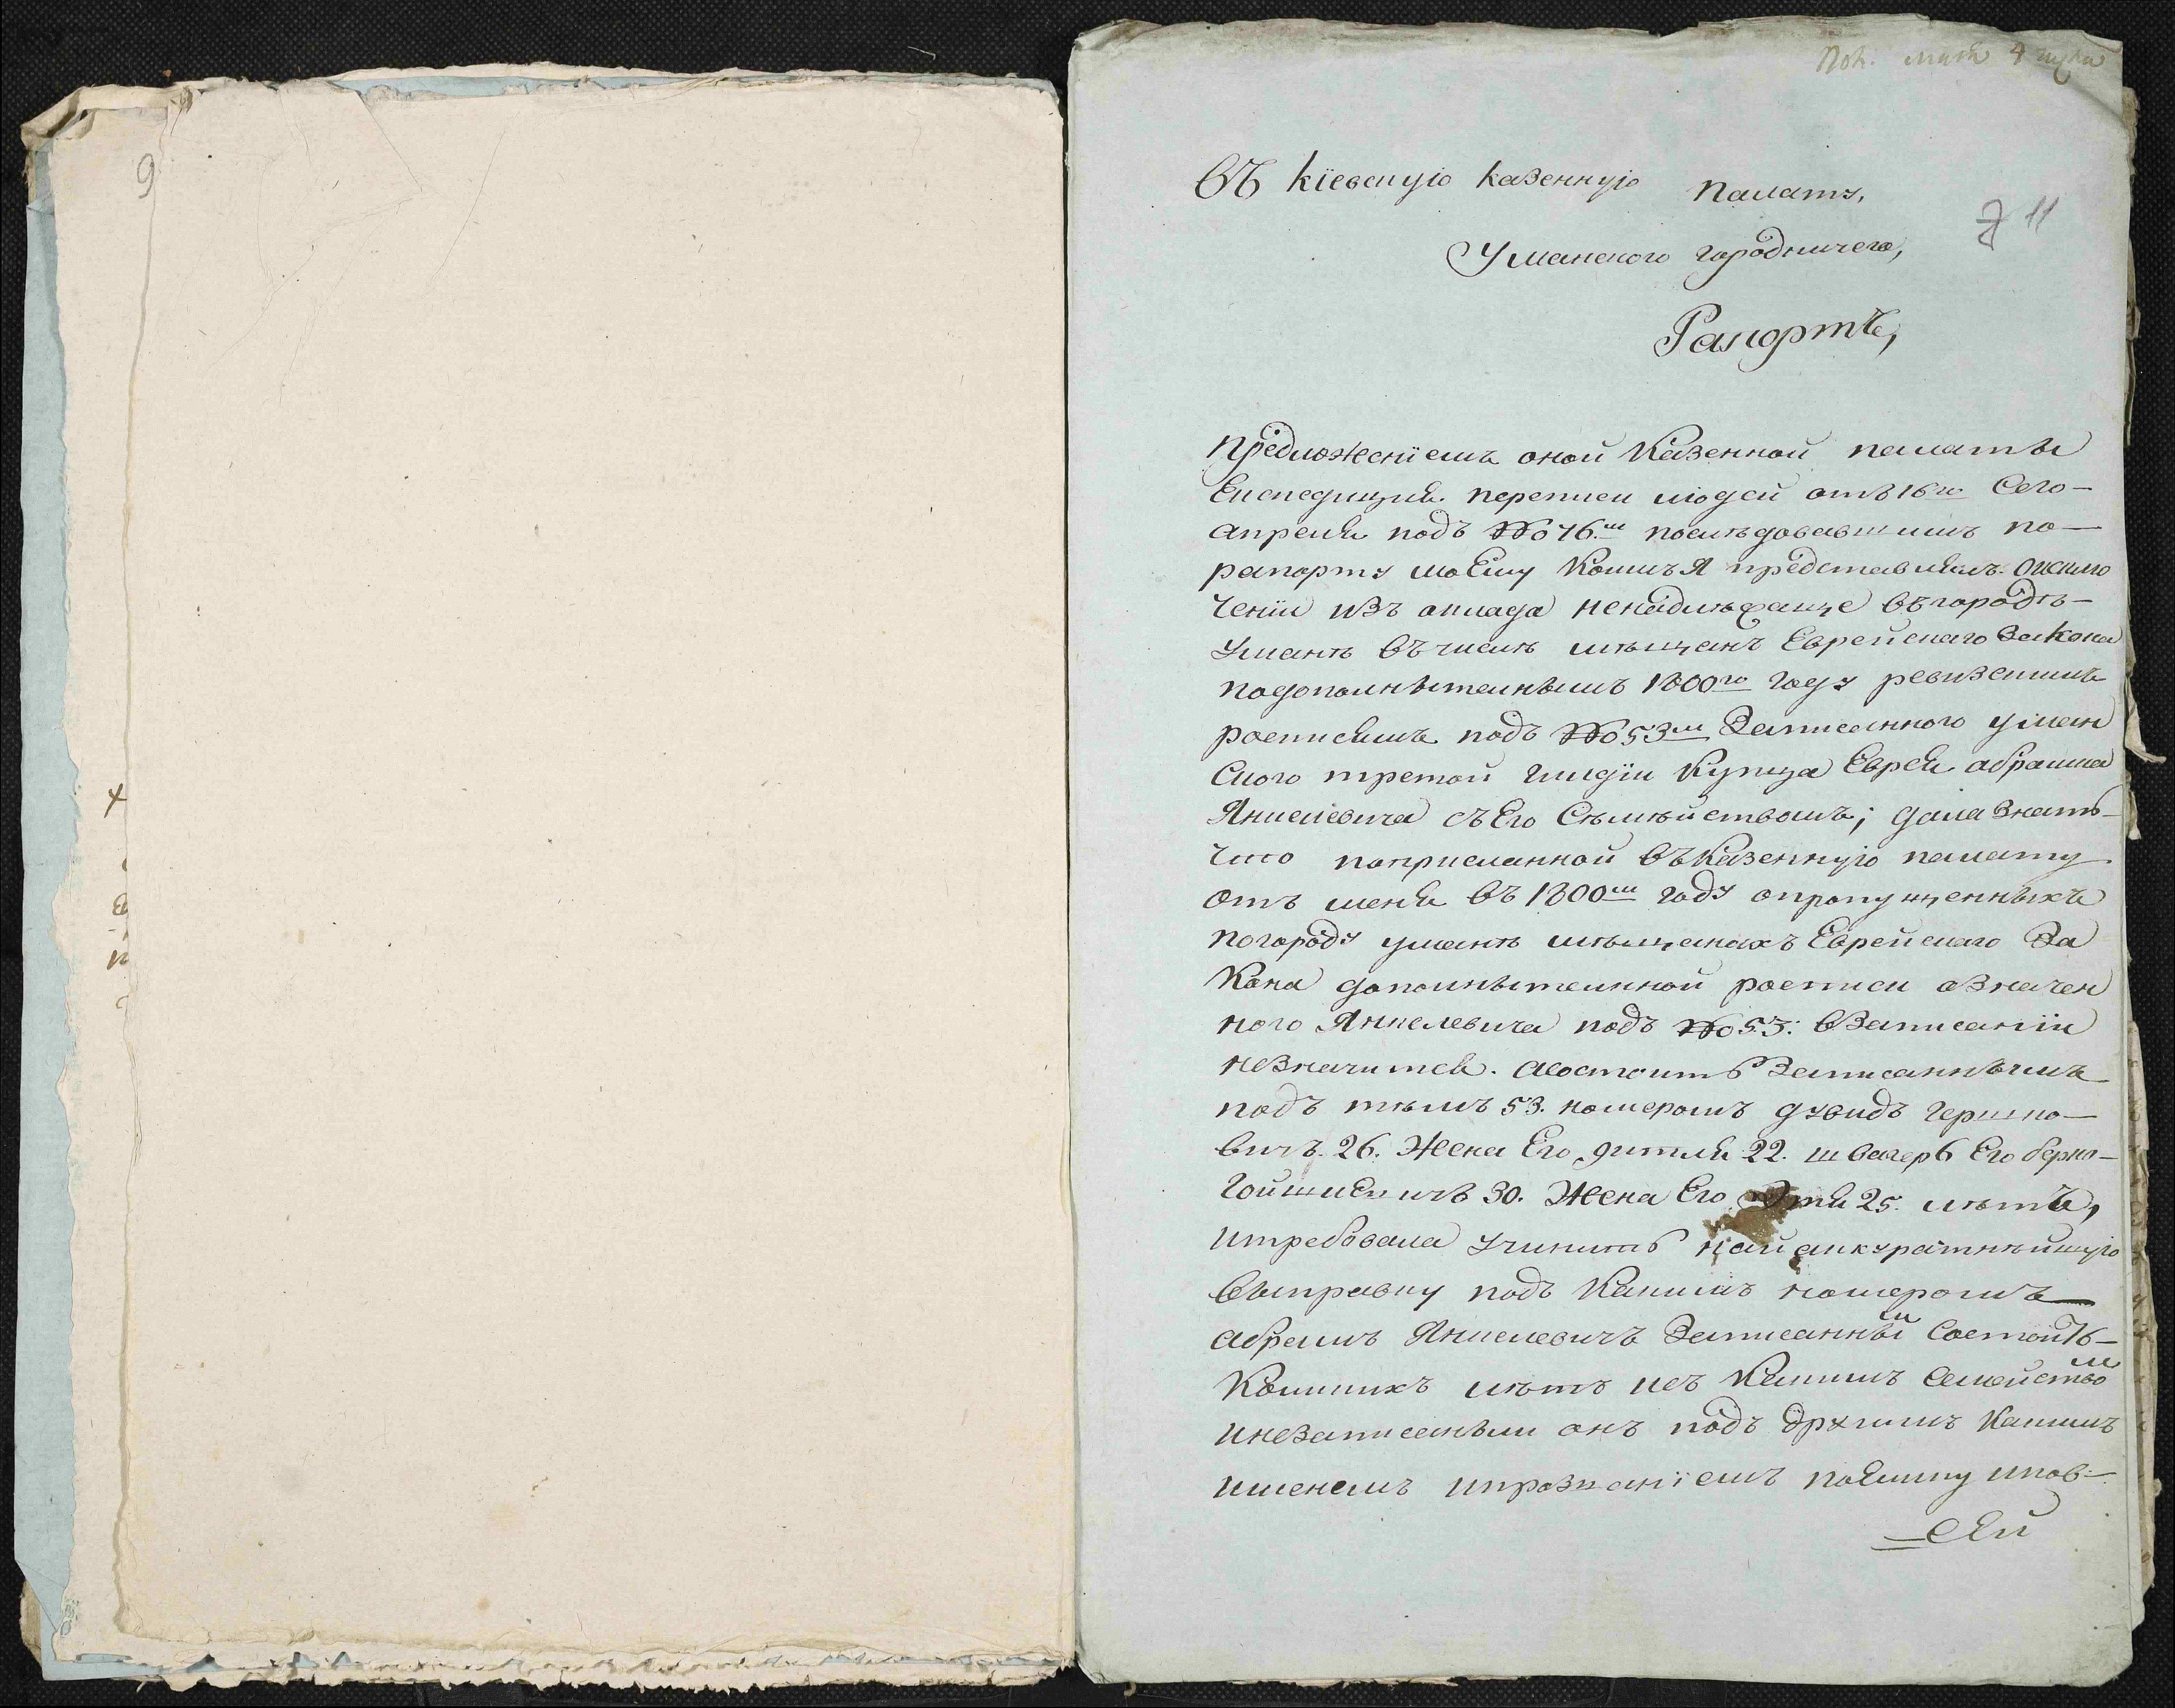 9
11
Въ Кіевскую Казенную Палату,
Уманского городничего,
Рапортъ,
Предложеніемъ оной Казенной палаты
Експедиция переписи людей отъ 16го Сего
апреля подъ № 76м последовавшимъ по
рапорту моему коимъ я представлялъ о исклю
ченіи изъ оклада въ городѣ
уманѣ въ числѣ мѣщанъ Еврейскаго Закона
по дополнытелнымъ 1800го году ревизскимъ
росписямъ подъ № 53м Записанного уман
ского третой гилдіи купца Еврея абрама
Янкелевича съ Его Сѣмѣйствомъ; дала знать
что по присланной въ казенную палату
отъ меня въ 1800м году о пропущенныхъ
по городу уманѣ мѣщанахъ Еврейскаго За
кона дополнытелнной росписи означен
ного Янкелевича подъ № 53: в Записаніи
незначится. а состоитъ Записаннымъ
подъ тѣмъ 53. номеромъ дувидъ гершко
вичъ. 26. Жена Его дитля 22. швагеръ Его берко
30. Жена Его 25. лѣтъ,
и требовала учинить найаккуратнѣйшую
выправку подъ какимъ номеромъ
абрамъ Янкелевичъ Записаннымъ Состоитъ
Коликихъ лѣтъ и съ какимъ семействомъ
и незаписанъ ли онъ подъ другимъ какимъ
именемъ и прозваніемъ почему и по въ
сей